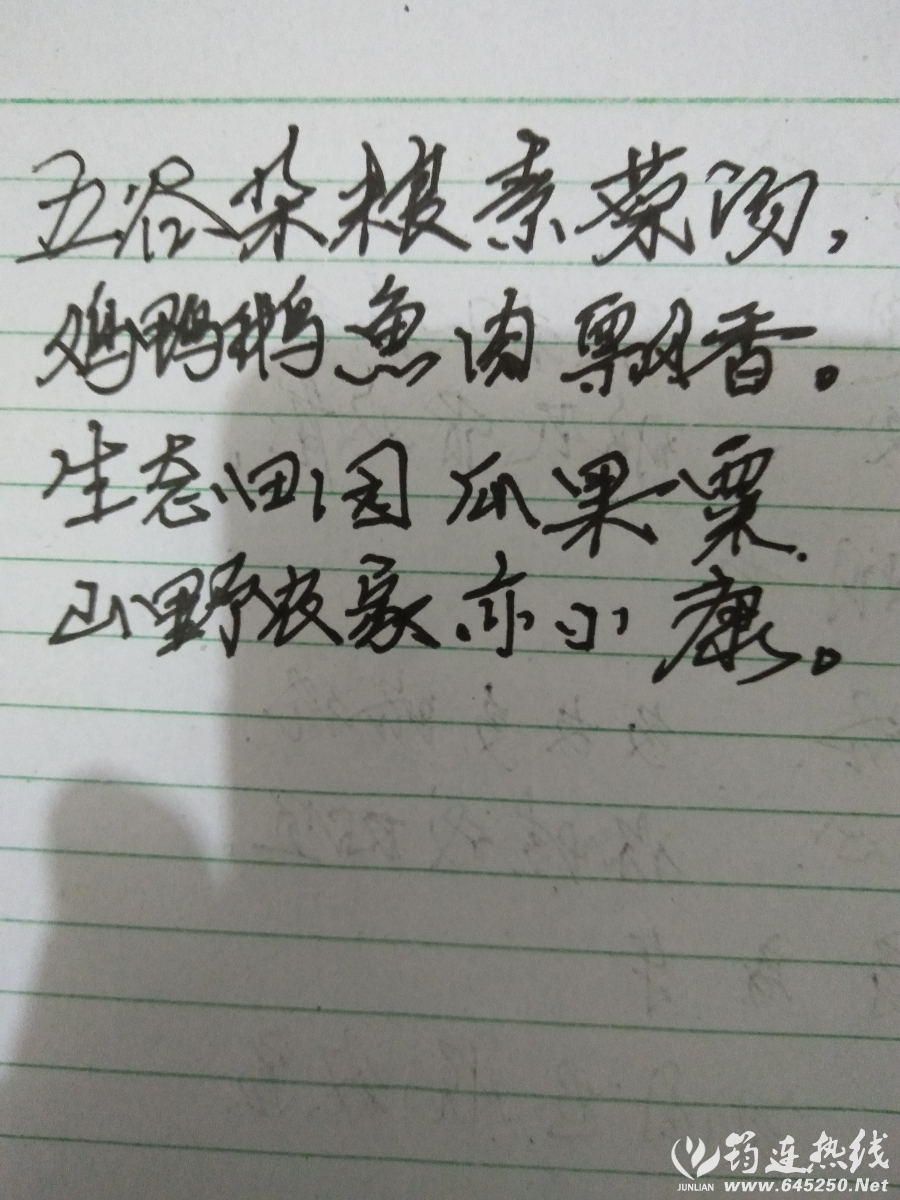 五谷杂粮素菜汤，
鸡鸭鹅鱼肉飘香。
生态田园瓜果粟
山野农家亦小康。
筠连热线
JUNLIAN www.645250.Net